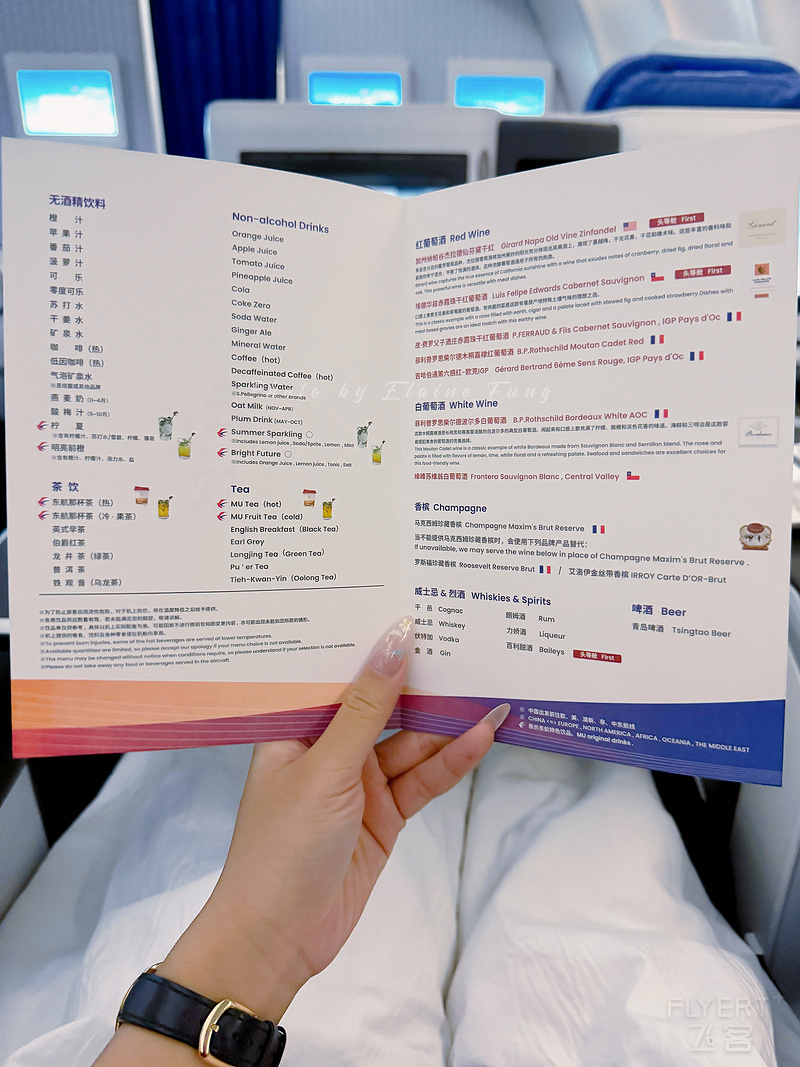 无酒精饮料
橙 汁
苹 果 汁
番 茄 汁
菠 萝 汁
可 乐
零度可乐
苏 打 水
干 姜 水
矿 泉 水
咖 啡（热）
低因咖啡（热）
气泡矿泉水
※圣培露或其他品牌
燕 麦 奶（11-4月）
酸 梅 汁（5-10月）
柠 夏
※含有柠檬汁、苏打水/雪碧、柠檬、薄荷
明亮前橙
※含有橙汁、柠檬汁、汤力水、盐
Non-alcohol Drinks
Orange Juice
Apple Juice
Tomato Juice
Pineapple Juice
Cola
Coke Zero
Soda Water
Ginger Ale
Mineral Water
Coffee (hot)
Decaffeinated Coffee (hot)
Sparkling Water
※S.Pellegrino or other brands
Oat Milk (NOV-APR)
Plum Drink (MAY-OCT)
Summer Sparkling
※Includes Lemon juice , Soda/Sprite , Lemon , Mint
Bright Future
※Includes Orange Juice , Lemon juice , Tonic , Salt
茶 饮
东航那杯茶（热）
东航那杯茶（冷 · 果茶）
英式早茶
伯爵红茶
龙 井 茶（绿茶）
普 洱 茶
铁 观 音（乌龙茶）
Tea
MU Tea (hot)
MU Fruit Tea (cold)
English Breakfast (Black Tea)
Earl Grey
Longjing Tea (Green Tea)
Pu ' er Tea
Tieh-Kwan-Yin (Oolong Tea)
※为了防止颠簸出现烫伤危险，对于机上热饮，将在温度降低之后给予提供。
※各类饮品供应数量有限，若未能满足您的期望，敬请谅解。
※机上提供的餐食、饮料及各种零食请在机舱内享用。
※To prevent burn injuries, some of the hot beverages are served at lower temperatures.
※Available quantities are limited, so please accept our apology if your menu choice is not available.
※The menu may be changed without notice when conditions require, so please understand if your selection is not available.
※Please do not take away any food or beverages served in the aircraft.
红葡萄酒 Red Wine
加州纳帕谷杰拉德仙芬黛干红 Girard Napa Old Vine Zinfandel 头等舱 First
Girard wine captures the true essence of California sunshine with a wine that exudes notes of cranberry, dried fig, dried floral and
oak. This powerful wine is versatile with meal dishes.
埃德华兹赤霞珠干红葡萄酒 Luis Felipe Edwards Cabernet Sauvignon 头等舱 First
This is a classic example with a nose filled with earth, cigar and a palate laced with stewed fig and cooked strawberry.Dishes with
meat based gravies are an ideal match with this earthy wine.
皮·费罗父子酒庄赤霞珠干红葡萄酒 P.FERRAUD & Fils Cabernet Sauvignon , IGP Pays d'Oc
菲利普罗思柴尔德木桐嘉棣红葡萄酒 B.P.Rothschild Mouton Cadet Red
吉哈伯通第六感红-欧克IGP Gérard Bertrand 6ème Sens Rouge, IGP Pays d'Oc
Photo by Elaine Fung
白葡萄酒 White Wine
菲利普罗思柴尔德波尔多白葡萄酒 B.P.Rothschild Bordeaux White AOC
This Mouton Cadet wine is a classic example of white Bordeaux made from Sauvignon Blanc and Semillion blend. The nose and
palate is filled with flavors of lemon, lime, white floral and a refreshing palate. Seafood and sandwiches are excellent choices for
this food-friendly wine.
缘峰苏维翁白葡萄酒 Frontera Sauvignon Blanc , Central Valley
香槟 Champagne
马克西姆珍藏香槟 Champagne Maxim's Brut Reserve
当不能提供马克西姆珍藏香槟时，会使用下列品牌产品替代：
If unavailable, we may serve the wine below in place of Champagne Maxim's Brut Reserve .
罗斯福珍藏香槟 Roosevelt Reserve Brut / 艾洛伊金丝带香槟 IRROY Carte D'OR-Brut
威士忌 & 烈酒 Whiskies & Spirits
干 邑 Cognac
威士忌 Whiskey
伏特加 Vodka
金 酒 Gin
朗姆酒 Rum
力娇酒 Liqueur
百利甜酒 Baileys 头等舱 First
啤酒 Beer
青岛啤酒 Tsingtao Beer
中国出发前往欧、美、澳新、非、中东航线
CHINA EUROPE , NORTH AMERICA , AFRICA , OCEANIA , THE MIDDLE EAST
表示东航特色饮品。MU original drinks .
Girard
Bordeaux
FLYERT
飞客